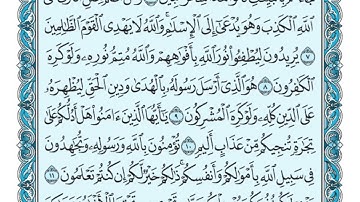 ٱللَّهِ ٱلۡكَذِبَ وَهُوَ يُدۡعَىٰٓ إِلَى ٱلۡإِسۡلَٰمِۚ وَٱللَّهُ لَا يَهۡدِي ٱلۡقَوۡمَ ٱلظَّٰلِمِينَ
٧ يُرِيدُونَ لِيُطۡفِـُٔواْ نُورَ ٱللَّهِ بِأَفۡوَٰهِهِمۡ وَٱللَّهُ مُتِمُّ نُورِهِۦ وَلَوۡ كَرِهَ
ٱلۡكَٰفِرُونَ ٨ هُوَ ٱلَّذِيٓ أَرۡسَلَ رَسُولَهُۥ بِٱلۡهُدَىٰ وَدِينِ ٱلۡحَقِّ لِيُظۡهِرَهُۥ
عَلَى ٱلدِّينِ كُلِّهِۦ وَلَوۡ كَرِهَ ٱلۡمُشۡرِكُونَ ٩ يَٰٓأَيُّهَا ٱلَّذِينَ ءَامَنُواْ هَلۡ أَدُلُّكُمۡ عَلَىٰ
تِجَٰرَةٖ تُنجِيكُم مِّنۡ عَذَابٍ أَلِيمٖ ١٠ تُؤۡمِنُونَ بِٱللَّهِ وَرَسُولِهِۦ وَتُجَٰهِدُونَ
فِي سَبِيلِ ٱللَّهِ بِأَمۡوَٰلِكُمۡ وَأَنفُسِكُمۡۚ ذَٰلِكُمۡ خَيۡرٞ لَّكُمۡ إِن كُنتُمۡ تَعۡلَمُونَ ١١